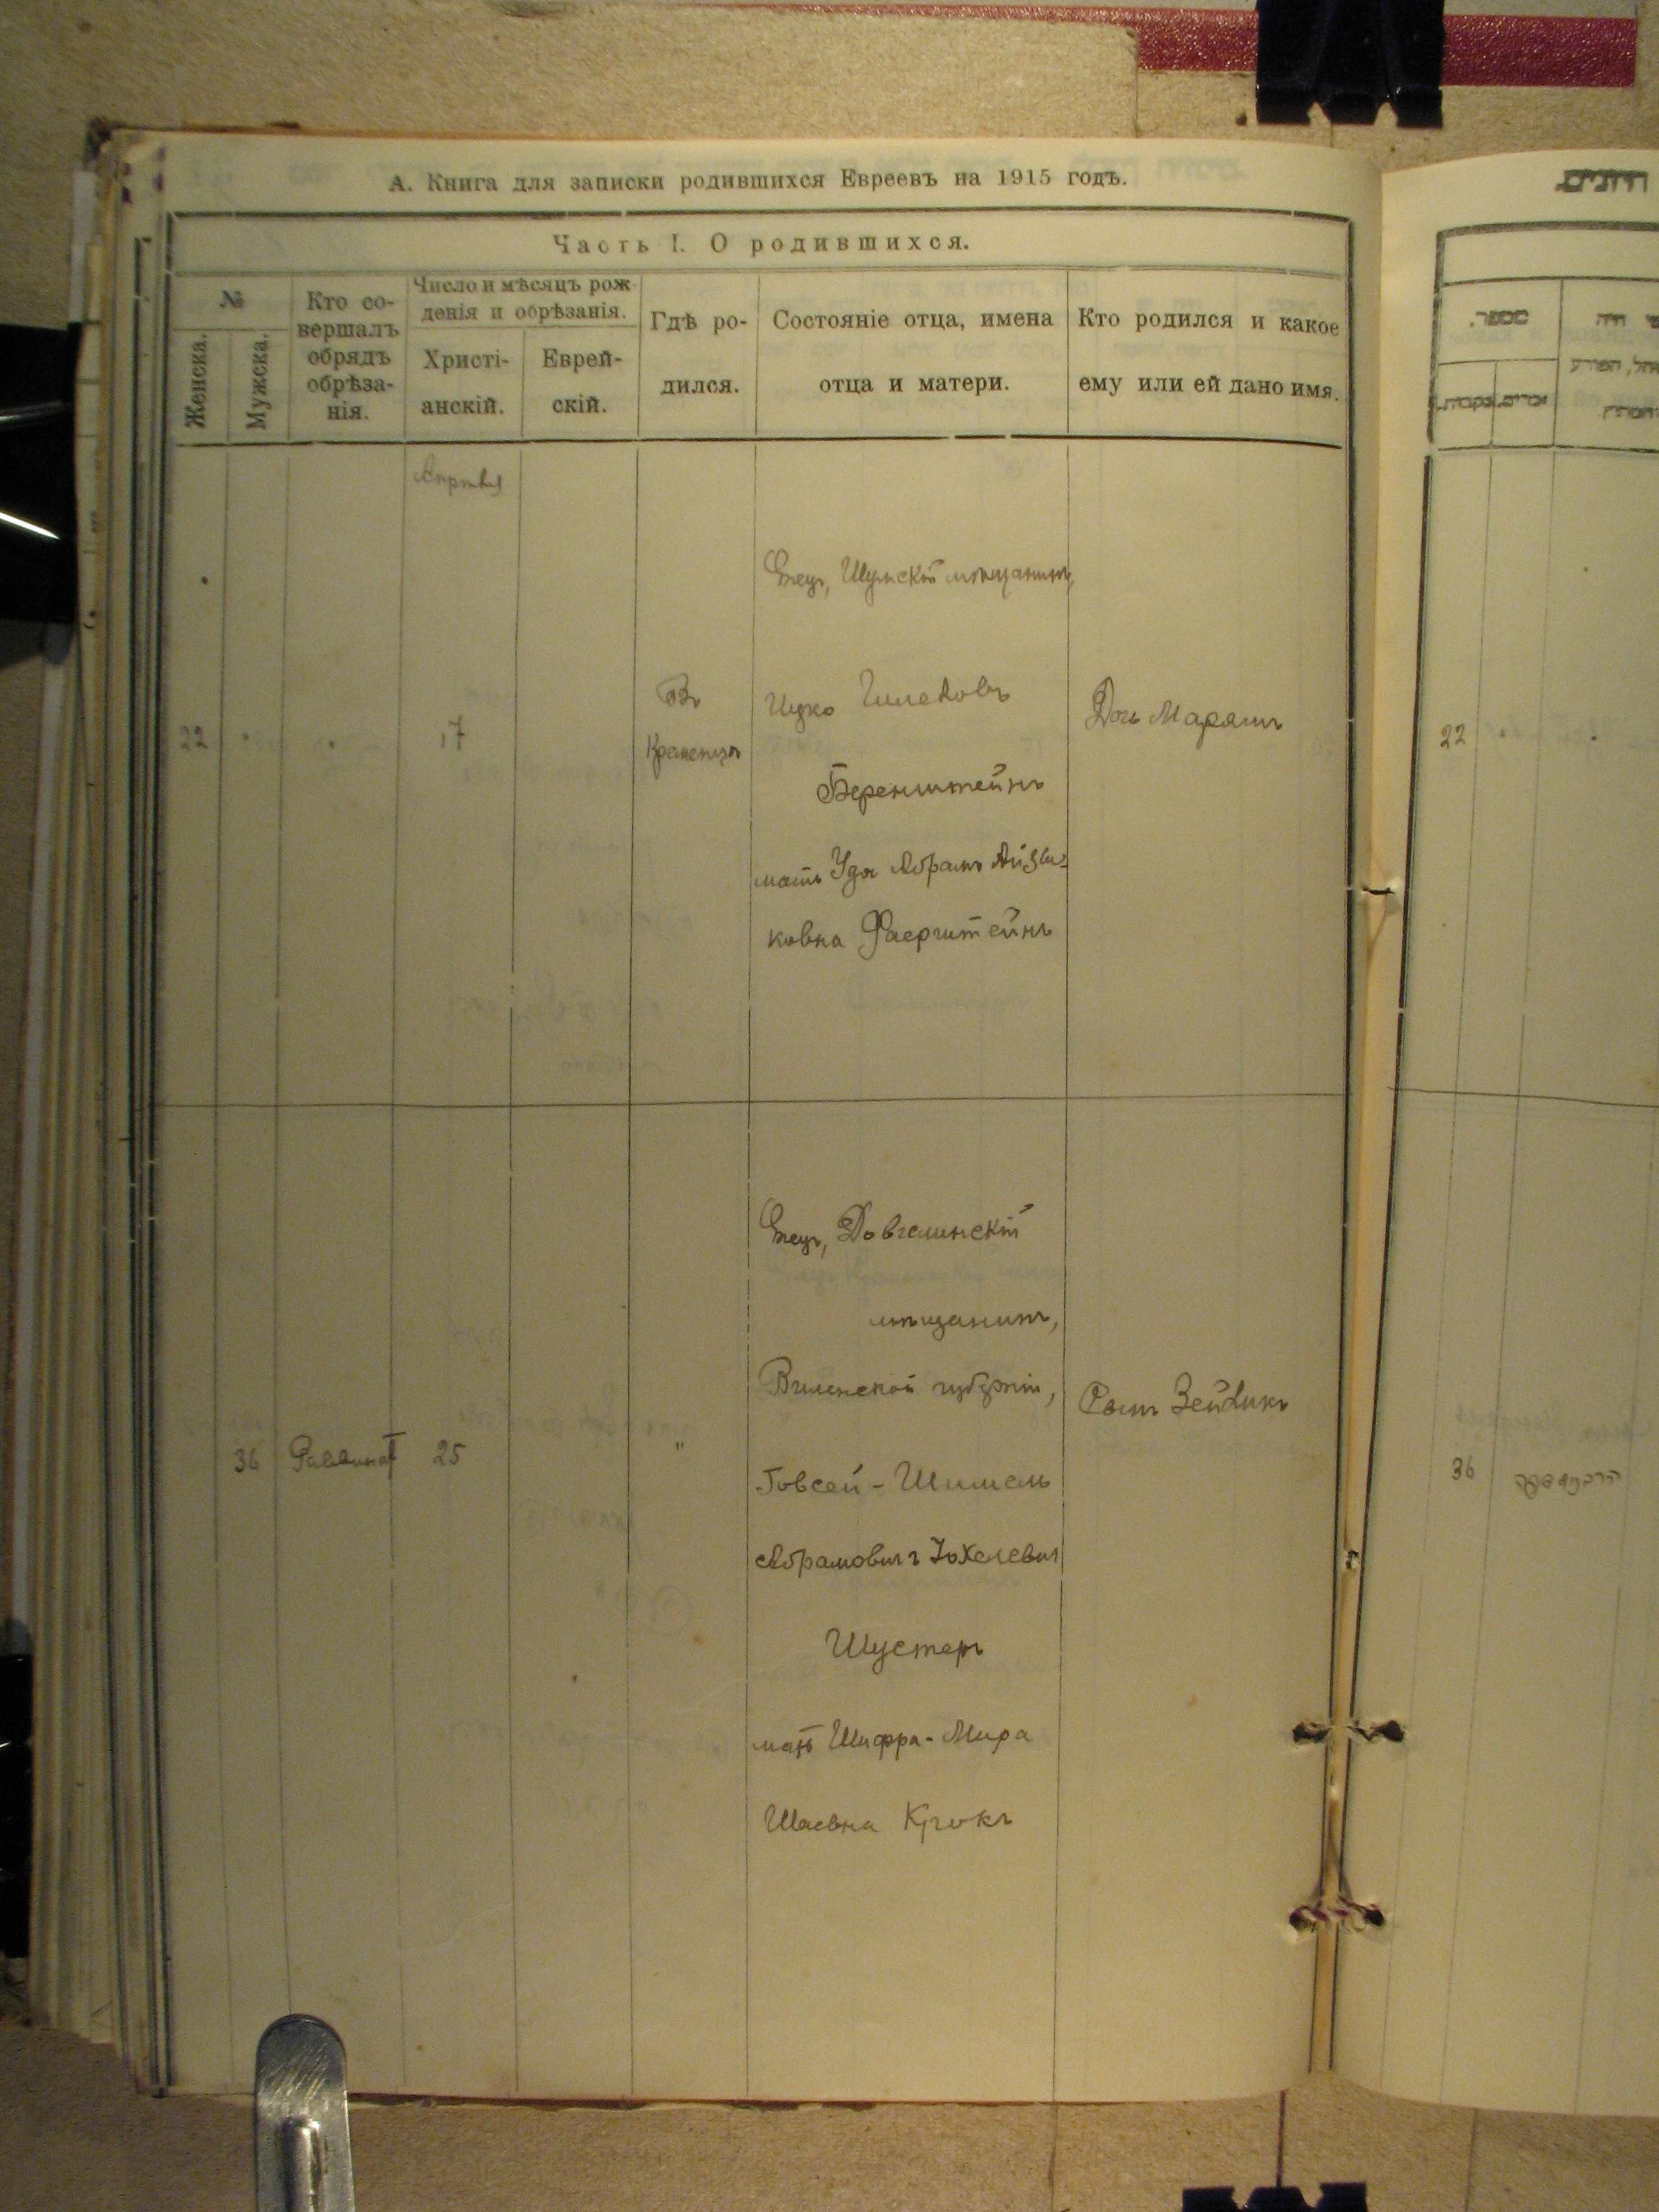 А. Книга для записки родившихся Евреевъ на 1915 годъ.
Часть I. О родившихся.
№
Женска.
Мужска.
Кто со-
вершалъ
обрядъ
обрѣза-
нія.
Число и мѣсяцъ рож-
денія и обрѣзанія.
Христі-
анскій.
Еврей-
скій.
Гдѣ ро-
дился.
Состояніе отца, имена
отца и матери.
Кто родился и какое
ему или ей дано имя.
Апрѣля
22
17
Въ
Кременцѣ
Отецъ, Шумскій мѣщанинъ,
Ицко
Беренштейнъ
мать Удя Абрамъ Айзи-
ковна Фаерштейнъ
Дочь Марямъ
36
Раввинъ
25
"
Отецъ, Довгелинскій
мѣщанинъ,
Виленской губерніи,
Іовсей-Шимель
Абрамовичъ
Шустеръ
мать Шифра-Мира
Шаевна Крокъ
Сынъ Зейликъ
מספר.
זכרים.
נקבות.
22
36